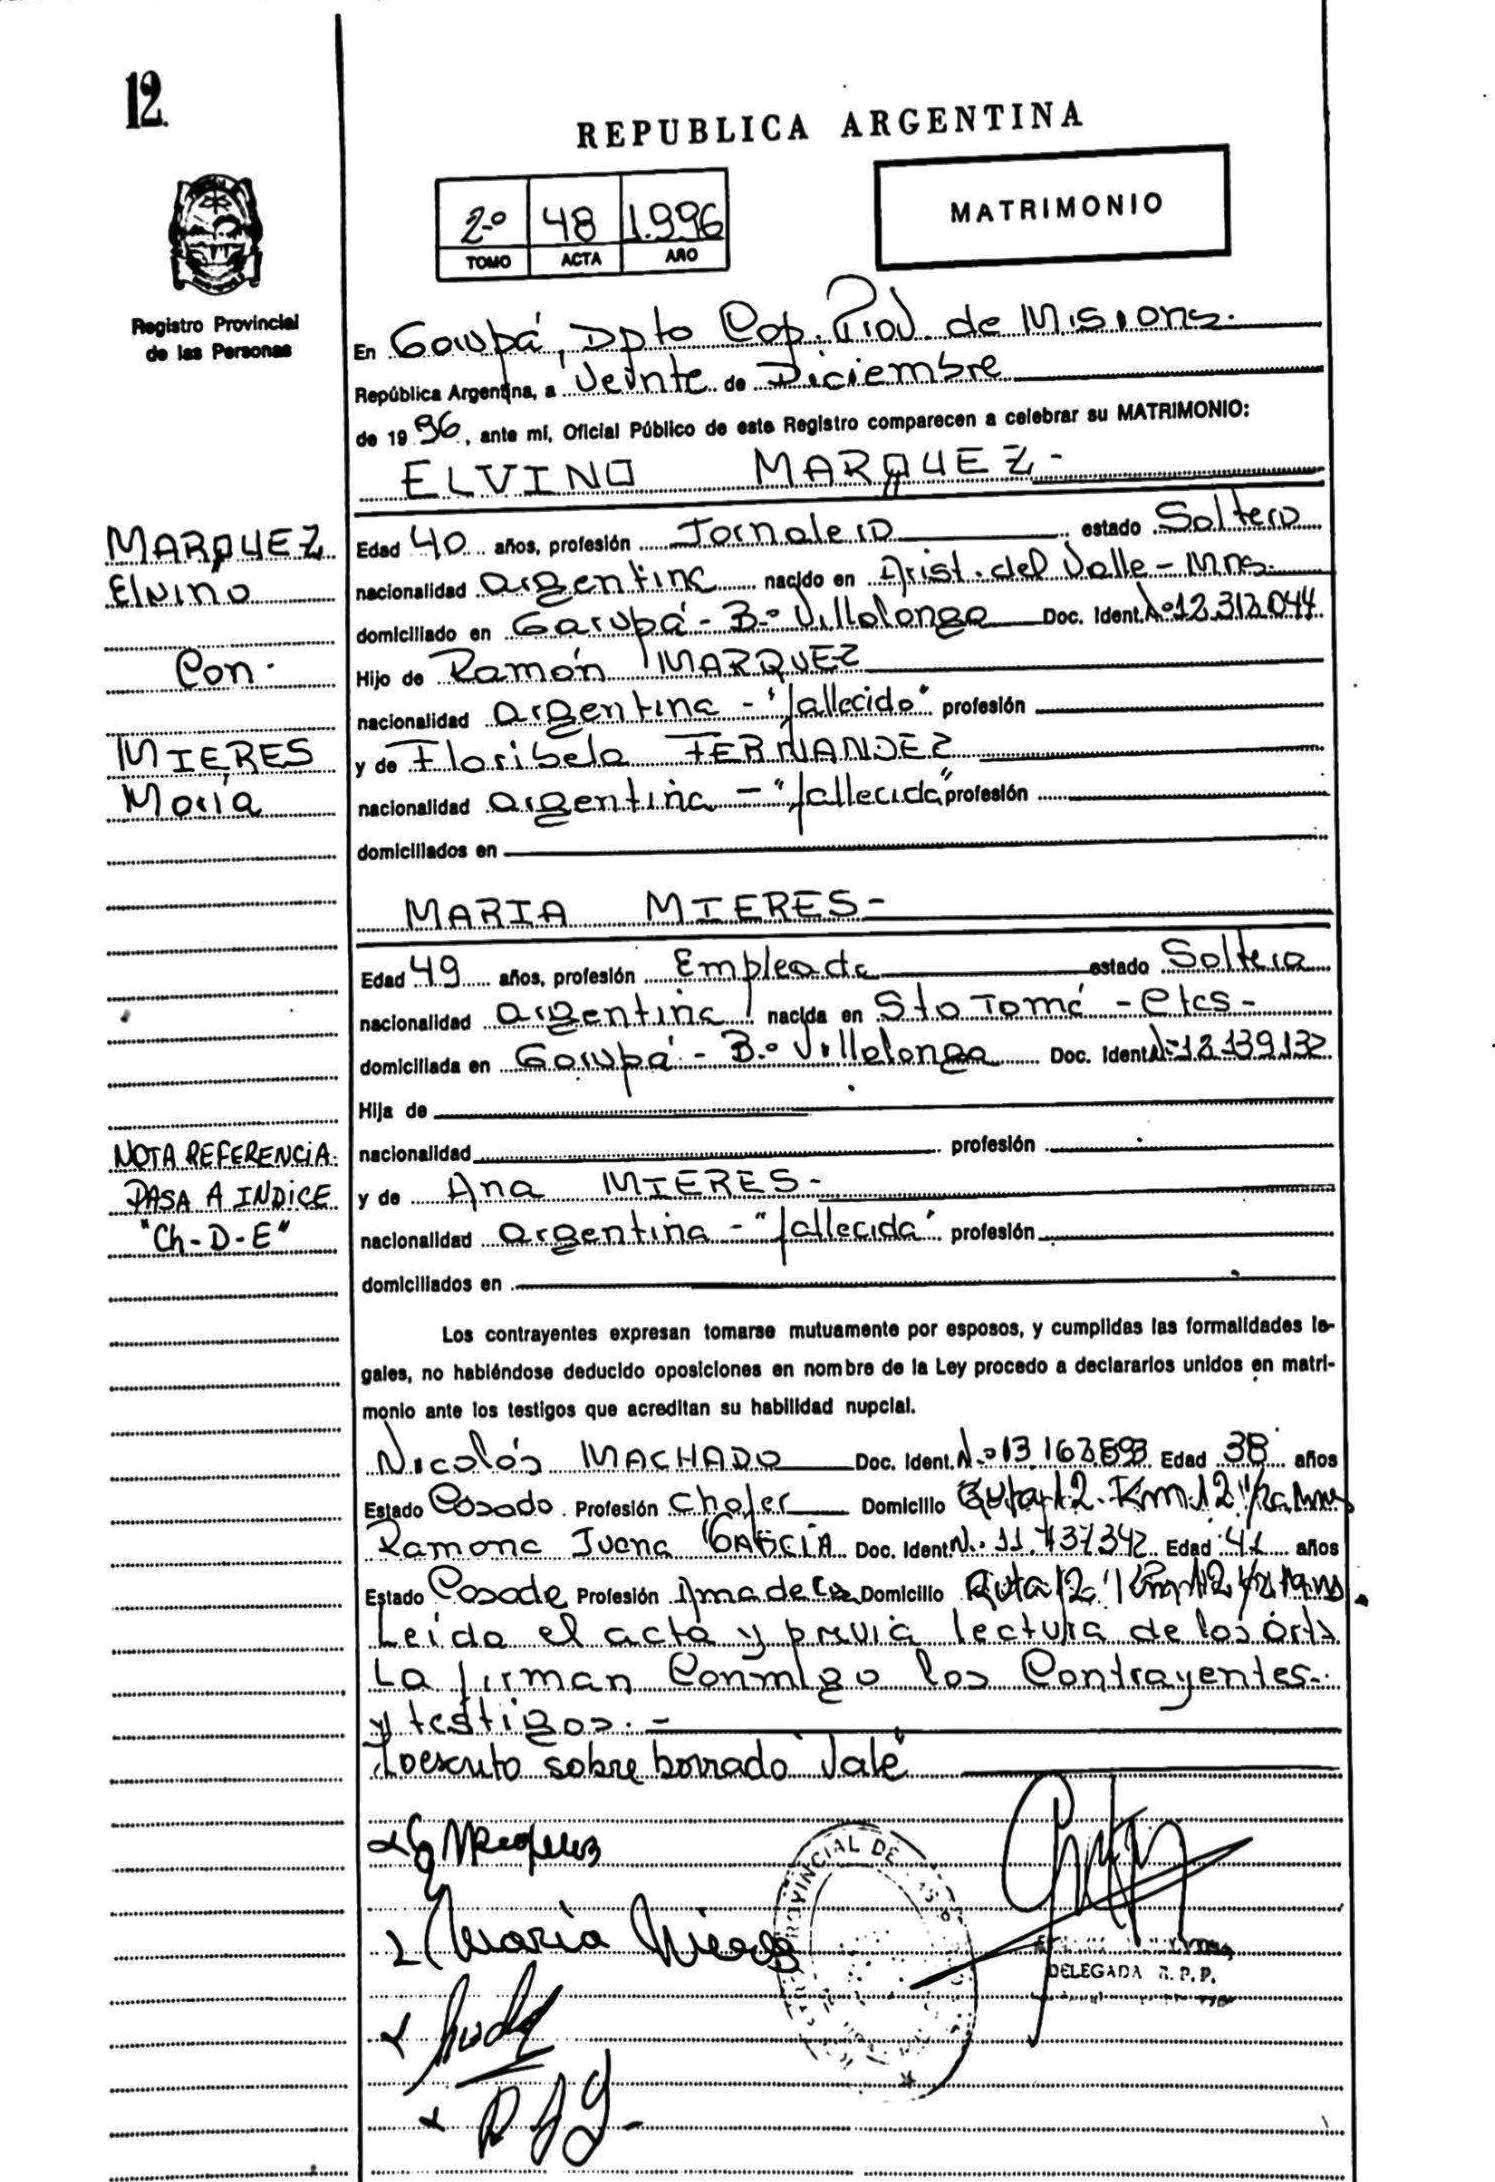 12
REPUBLICA ARGENTINA
2º 48 1.996
TOMO ACTA AÑO
MATRIMONIO
Registro Provincial
de las Personas
En Garupá, Dpto Cap. Prov. de Misiones.
República Argentina, a Veinte de Diciembre
de 1996, ante mí, Oficial Público de este Registro comparecen a celebrar su MATRIMONIO:
ELVINO MARQUEZ -
MARQUEZ
Elvino
Con.
MIERES
María
Edad 40 años, profesión Jornalero estado Soltero
nacionalidad argentina nacido en Arist. del Valle - Mns.
domiciliado en Garupá - B.º Villalonga Doc. Ident. Nº 12.312.044
Hijo de Ramón MARQUEZ
nacionalidad argentina - "fallecido" profesión
y de Floribela FERNANDEZ
nacionalidad argentina - "fallecida" profesión
domiciliados en
MARIA MIERES -
Edad 49 años, profesión Empleada estado Soltera
nacionalidad argentina nacida en Sto Tomé - Ctes -
domiciliada en Garupá - B.º Villalonga Doc. Ident. Nº 12.139.132
Hija de
nacionalidad profesión
y de Ana MIERES -
nacionalidad argentina - "fallecida" profesión
domiciliados en
NOTA REFERENCIA.
PASA A INDICE
"Ch - D - E"
Los contrayentes expresan tomarse mutuamente por esposos, y cumplidas las formalidades le-
gales, no habiéndose deducido oposiciones en nombre de la Ley procedo a declararlos unidos en matri-
monio ante los testigos que acreditan su habilidad nupcial.
Nicolás MACHADO Doc. Ident. Nº 13.163.893 Edad 38 años
Estado Casado Profesión Chofer Domicilio Ruta 12 Km. 12 1/2
Ramona Juana GARCÍA Doc. Ident. Nº 11.737.342 Edad 41 años
Estado Casada Profesión Ama de Casa Domicilio Ruta 12 Km 12 1/2
Leída el acta y previa lectura de los arts
La firman Conmigo los Contrayentes
y testigos. -
Lo escrito sobre borrado "Vale"
Marquez
María Mieres
PROVINCIAL DE
DELEGADA R. P. P.